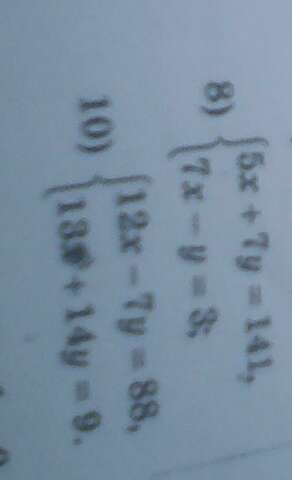 8) { 5x + 7y = 141,
7x - y = 3;
10) { 12x - 7y = 88,
13x + 14y = 9.